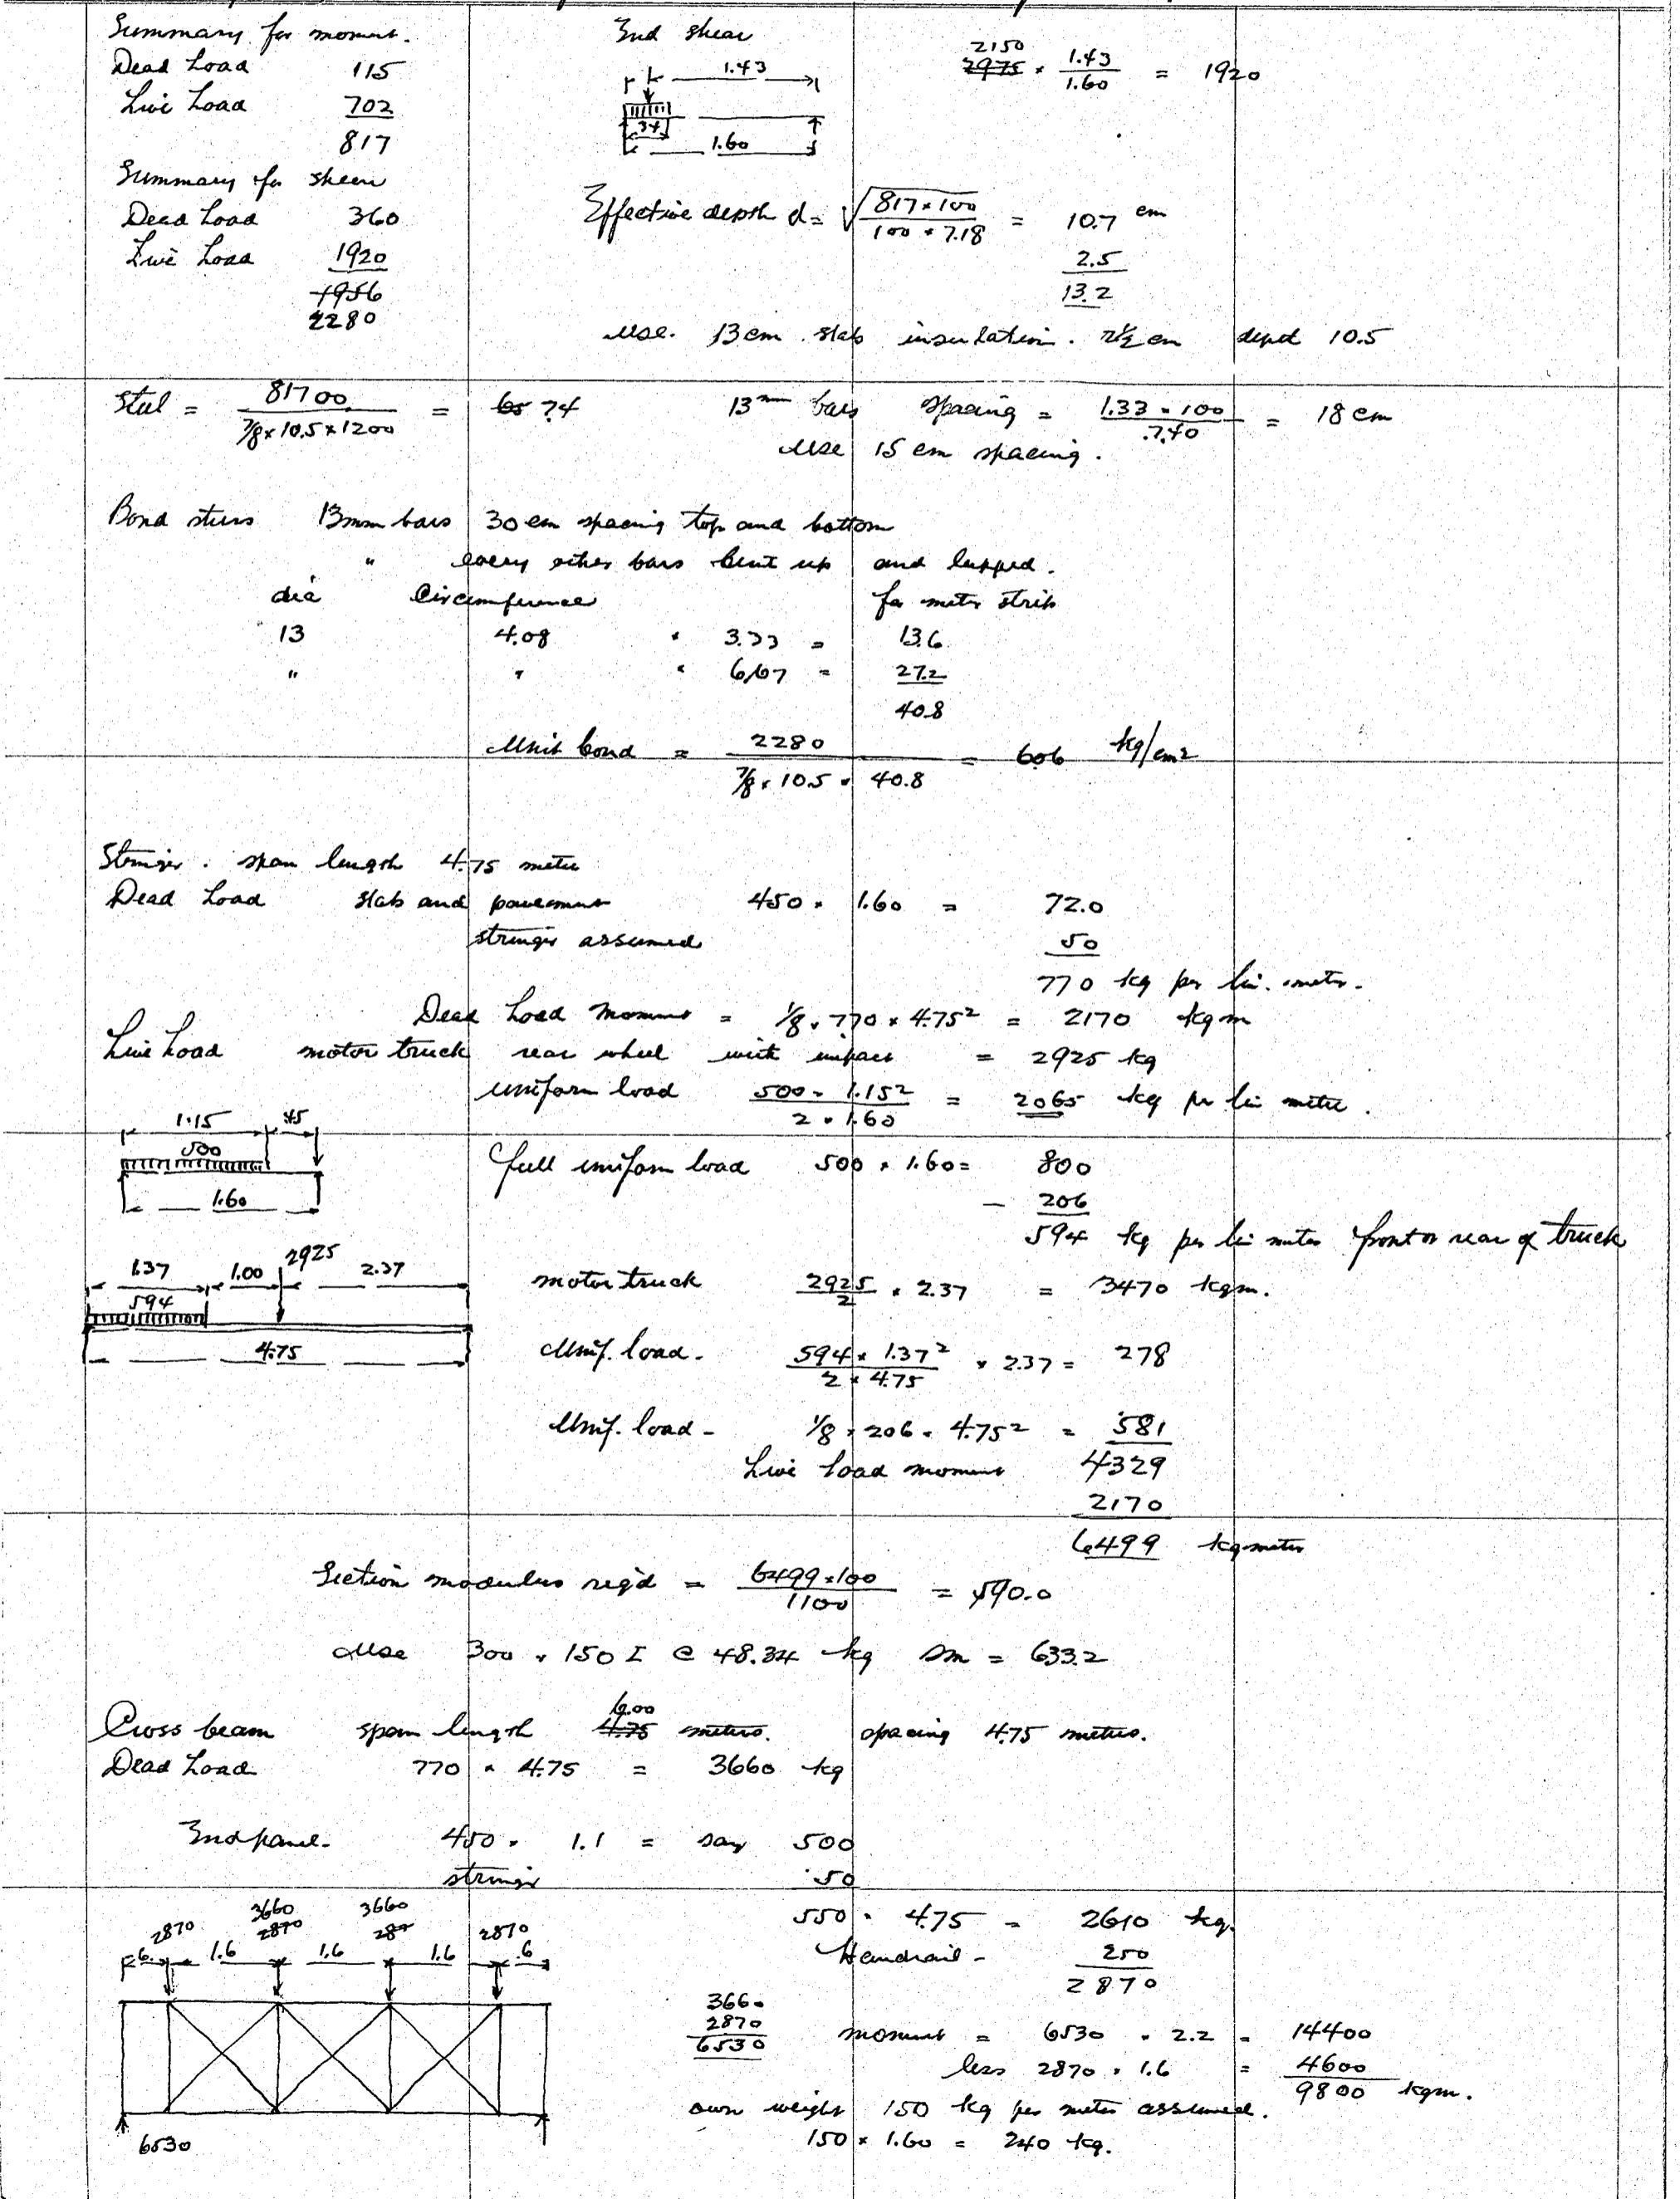 Summary for moment.
Dead Load 115
Live Load 702
817
Summary for shear
Dead Load 360
Live Load 1920
1956
2280
End shear
1.43
.34
1.60
2150
2975 × 1.43 / 1.60 = 1920
Effective depth d = √ 817×100 / 100 × 7.18 = 10.7 cm
2.5
13.2
Use. 13 cm. slab insulation. 2½ cm depd 10.5
Steel = 81700 / 7/8 × 10.5 × 1200 = 7.4
13mm bars spacing = 1.33 × 100 / 7.40 = 18 cm
Use 15 cm spacing.
Bond stress 13mm bars 30 cm spacing top and bottom
" every other bars bent up and lapped.
dia Circumference for meter strip
13 4.08 × 3.33 = 13.6
" " × 6.67 = 27.2
40.8
Unit bond = 2280 / 7/8 × 10.5 × 40.8 = 6.06 kg/cm2
Stringer. span length 4.75 meter
Dead Load slab and pavement 450 × 1.60 = 72.0
stringer assumed 50
770 kg per lin. meter.
Dead Load Moment = 1/8 × 770 × 4.75² = 2170 kgm
Live Load motor truck rear wheel with impact = 2925 kg
uniform load 500 × 1.15² / 2 × 1.60 = 2065 kg per lin metre.
1.15 .45
500
1.60
full uniform load 500 × 1.60 = 800
- 206
594 kg per lin meter front or rear of truck
1.37 1.00 2925 2.37
594
4.75
motor truck 2925 / 2 × 2.37 = 3470 kgm.
Unif. load. 594 × 1.37² / 2 × 4.75 × 2.37 = 278
Unif. load - 1/8 × 206 × 4.75² = 581
Live load moment 4329
2170
6499 kgmeter
Section modulus req'd = 6499×100 / 1100 = 590.0
Use 300 × 150 I @ 48.34 kg Sm = 633.2
Cross beam span length 6.00 4.75 meters. spacing 4.75 metres.
Dead Load 770 × 4.75 = 3660 kg
End panel. 450 × 1.1 = say 500
stringer 50
550 × 4.75 = 2610 kg.
Handrail - 250
2870
3660 3660
2870 2870 287 2870
.6 1.6 1.6 1.6 .6
6530
3660
2870
6530
moment = 6530 × 2.2 = 14400
less 2870 × 1.6 = 4600
9800 kgm.
own weight 150 kg per meter assumed.
150 × 1.60 = 240 kg.